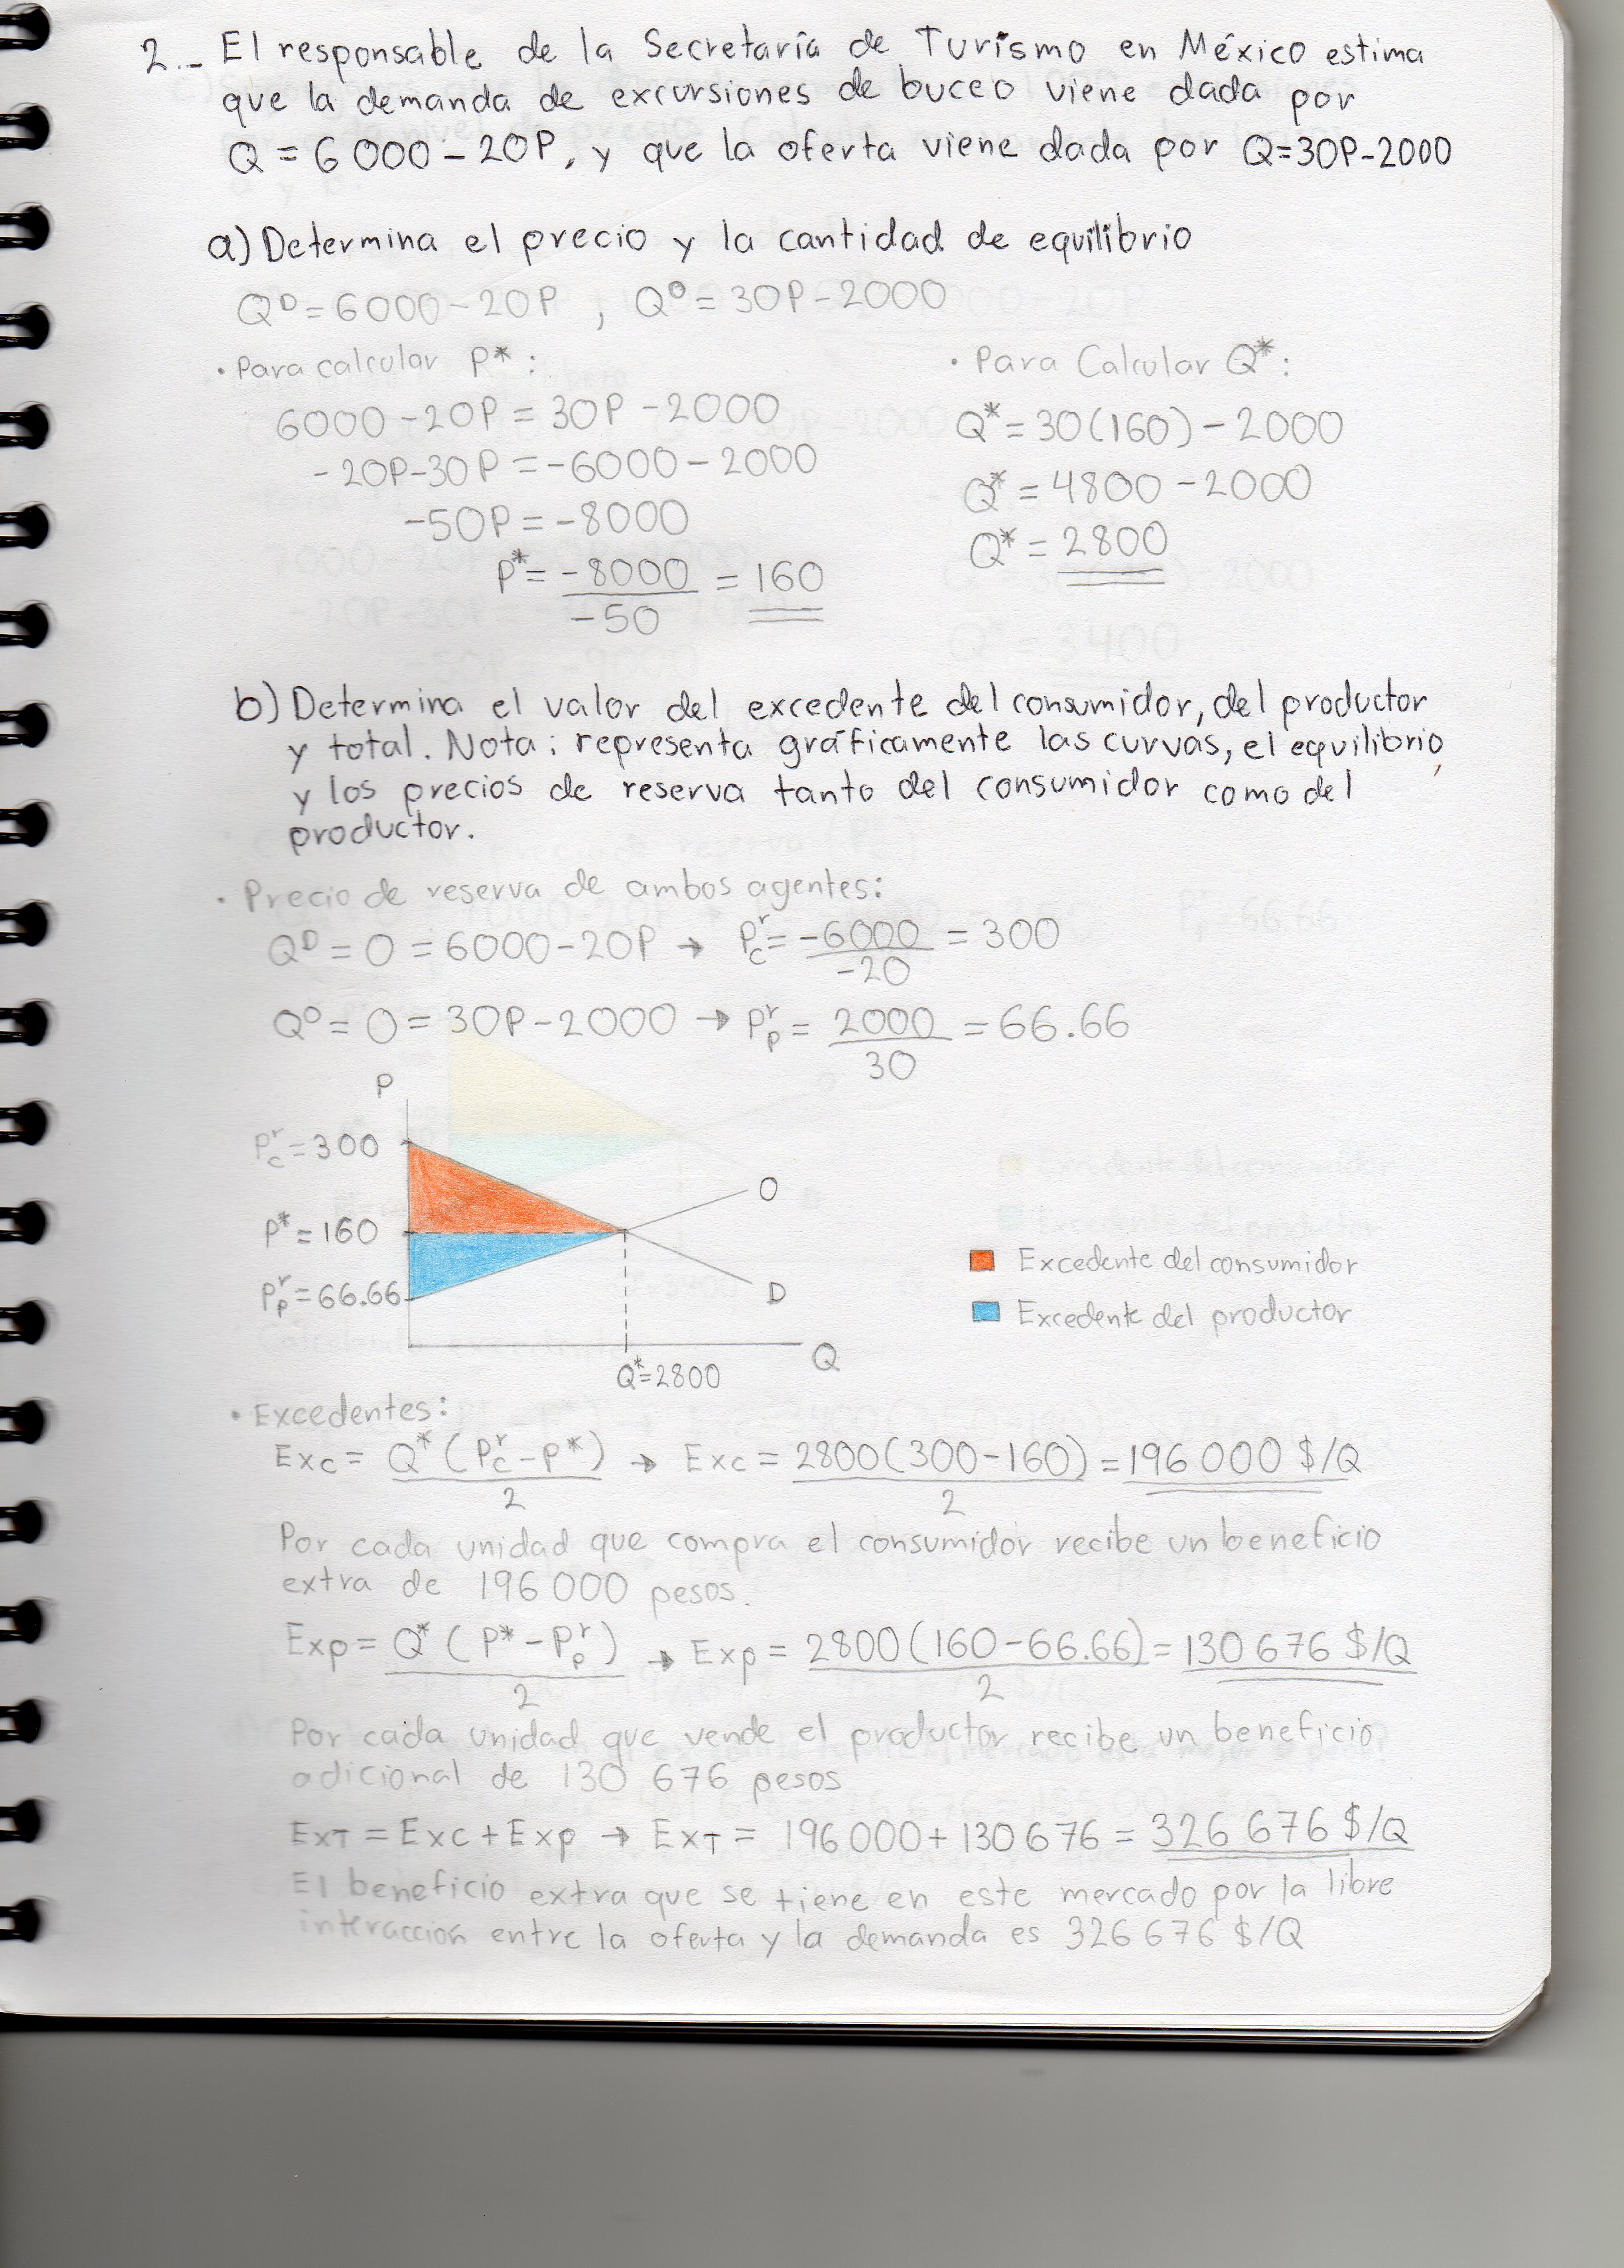 2.- El responsable de la Secretaría de Turismo en México estima
que la demanda de excursiones de buceo viene dada por
Q = 6000 - 20P, y que la oferta viene dada por Q=30P-2000
a) Determina el precio y la cantidad de equilibrio
Qᴰ = 6000 - 20P , Qᴼ = 30P - 2000
• Para calcular P* :
6000 - 20P = 30P - 2000
-20P-30P = -6000 - 2000
-50P = -8000
P* = -8000/-50 = 160
• Para Calcular Q* :
Q* = 30(160) - 2000
Q* = 4800 - 2000
Q* = 2800
b) Determina el valor del excedente del consumidor, del productor
y total. Nota: representa gráficamente las curvas, el equilibrio,
y los precios de reserva tanto del consumidor como del
productor.
• Precio de reserva de ambos agentes:
Qᴰ = 0 = 6000-20P → Pʳc = -6000/-20 = 300
Qᴼ = 0 = 30P-2000 → Pʳp = 2000/30 = 66.66
P
Pʳc = 300
P* = 160
Pʳp = 66.66
O
D
Q
Q*=2800
Excedente del consumidor
Excedente del productor
• Excedentes:
Exc = Q* (Pʳc - P*)/2 → Exc = 2800(300-160)/2 = 196 000 $/Q
Por cada unidad que compra el consumidor recibe un beneficio
extra de 196 000 pesos.
Exp = Q* (P* - Pʳp)/2 → Exp = 2800(160-66.66)/2 = 130 676 $/Q
Por cada unidad que vende el productor recibe un beneficio
adicional de 130 676 pesos
ExT = Exc + Exp → ExT = 196 000 + 130 676 = 326 676 $/Q
El beneficio extra que se tiene en este mercado por la libre
interacción entre la oferta y la demanda es 326 676 $/Q